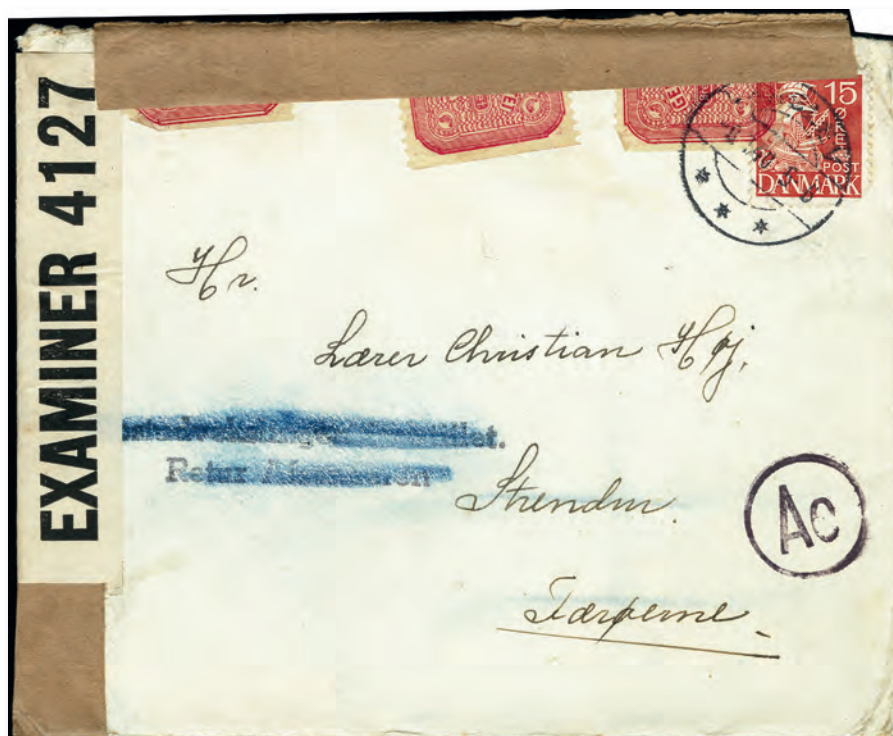 EXAMINER 4127
15
ØRE
POST
DANMARK
Hr.
Lærer Christian Høj.
Retur Afsenderen
Strendur.
Ac
Færøerne